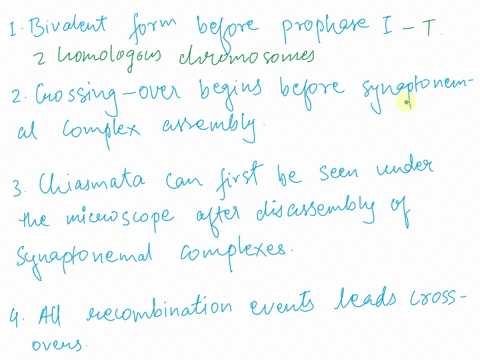 1. Bivalent form before prophase I - T.
2 homologous chromosomes
2. Crossing-over begins before synaptonem-
al complex assembly.
3. Chiasmata can first be seen under
the microscope after disassembly of
Synaptonemal complexes.
4. All recombination events leads cross-
overs.